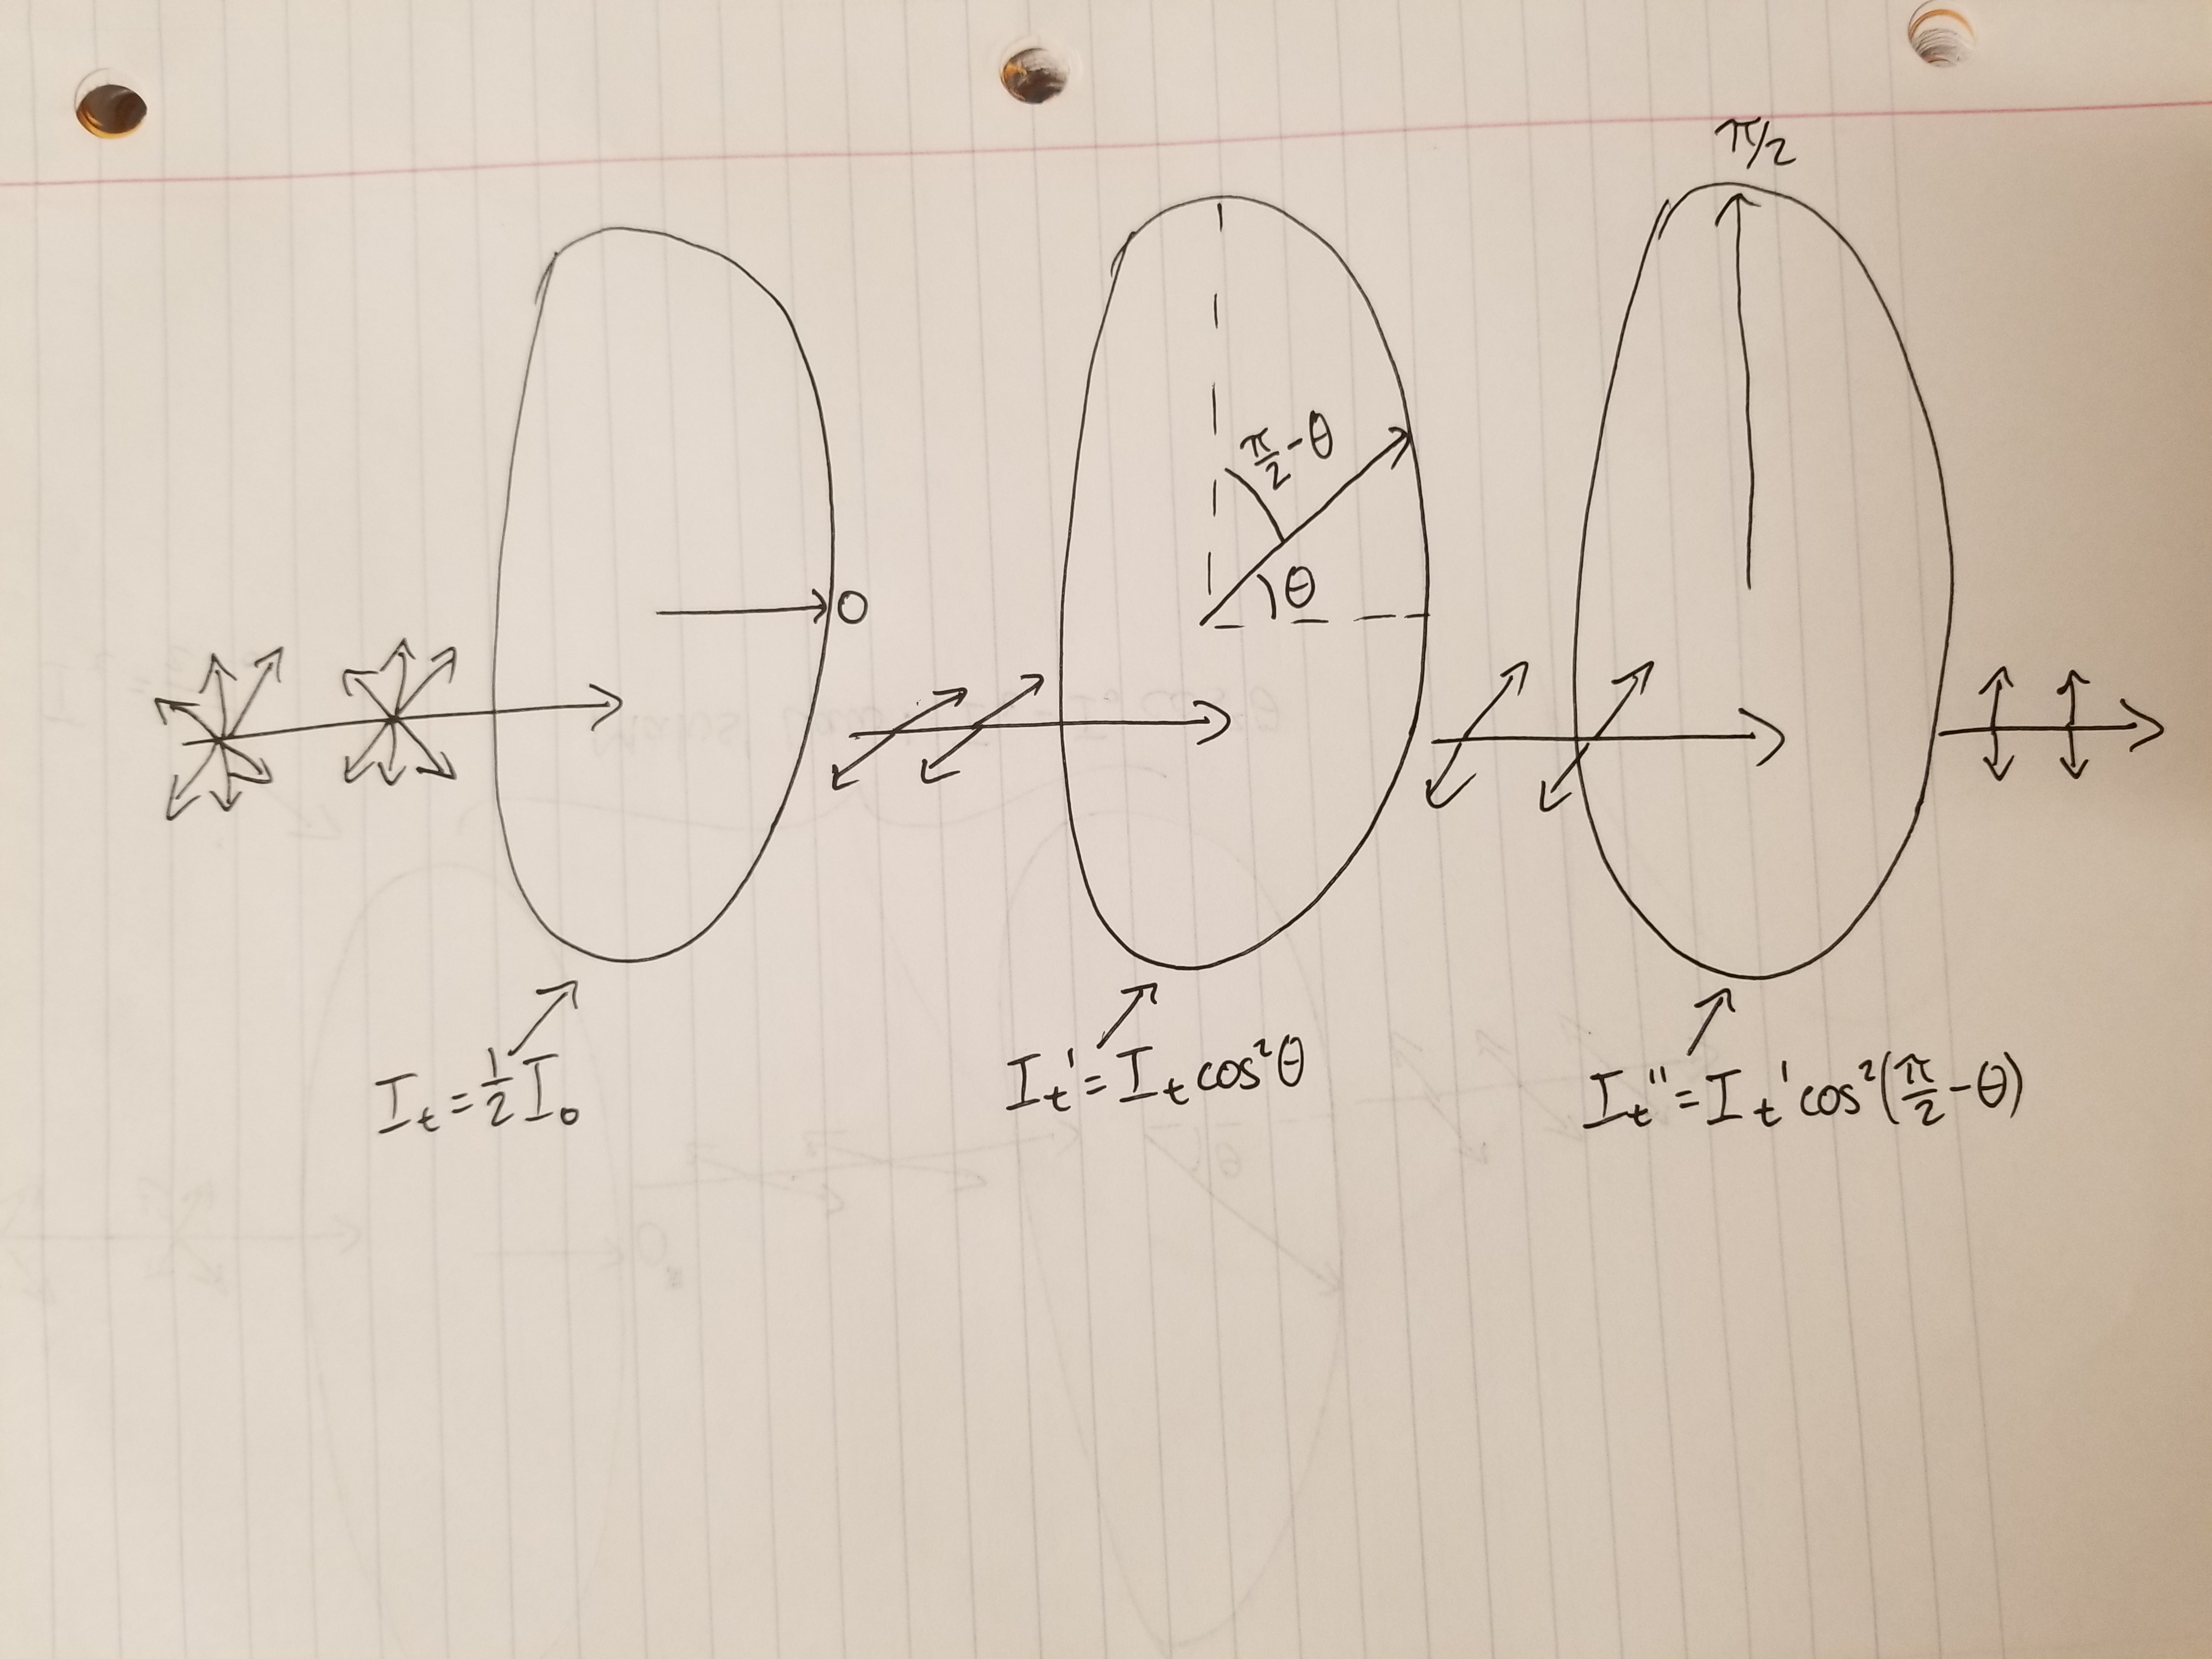 π/2
π/2 - θ
θ
0
I_t = 1/2 I_0
I_t' = I_t cos²θ
I_t'' = I_t' cos²(π/2 - θ)